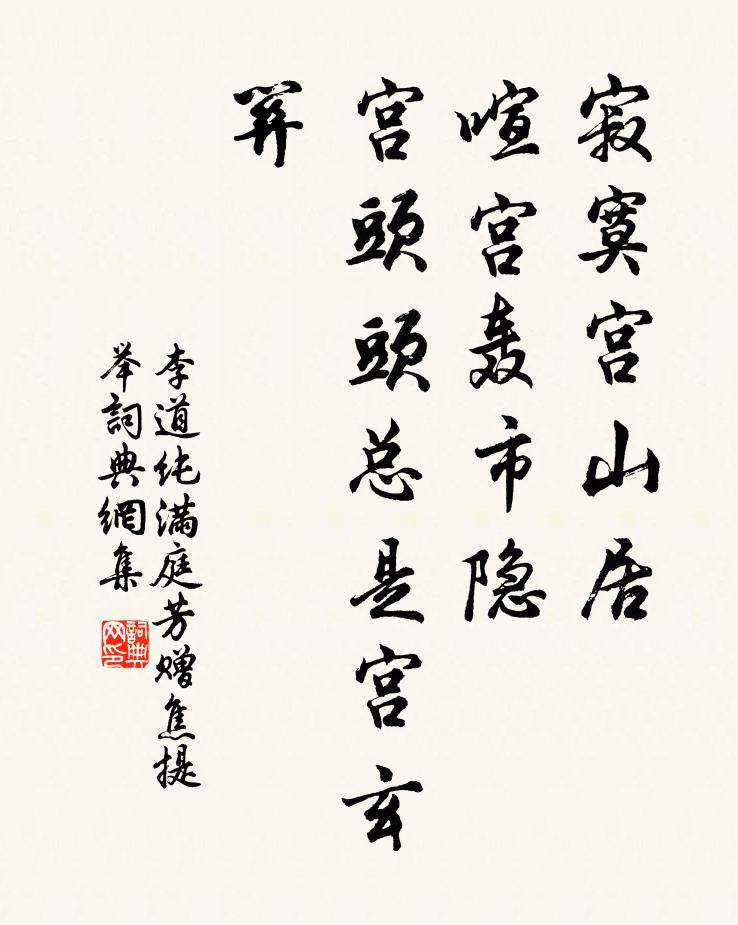 寂寞宫山居
喧宫轰市隐
宫頭頭总是宫玄
关
李道纯满庭芳赠焦提
举詞典網集
詞典
网印